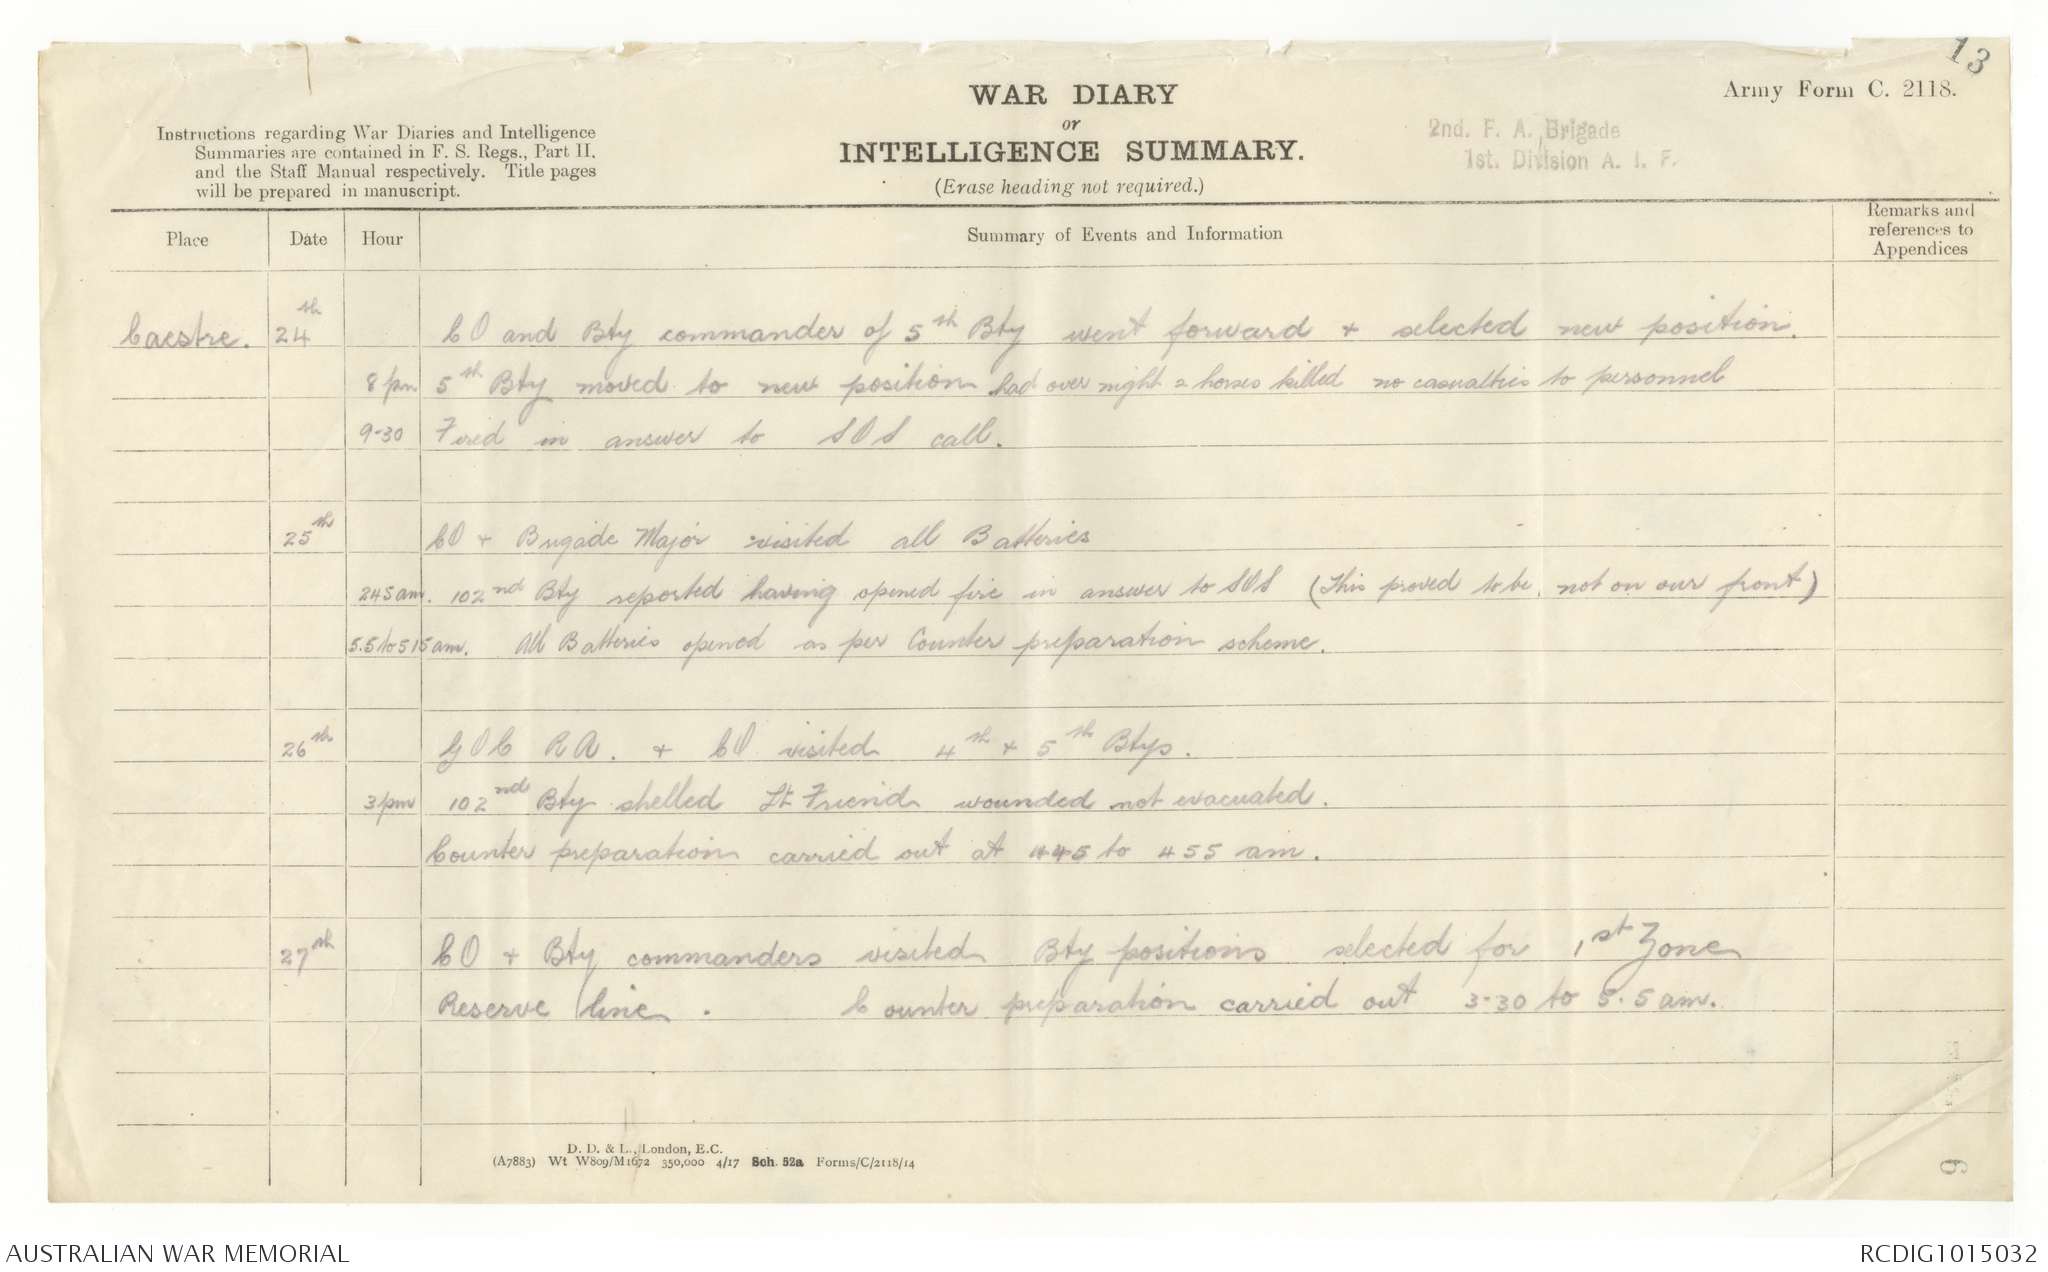 13
Army Form C. 2118.
WAR DIARY
or
INTELLIGENCE SUMMARY.
(Erase heading not required.)
Instructions regarding War Diaries and Intelligence
Summaries are contained in F. S. Regs., Part II.
and the Staff Manual respectively. Title pages
will be prepared in manuscript.
2nd. F. A. Brigade
1st. Division A. I. F.
Place Date Hour Summary of Events and Information Remarks and references to Appendices
Caestre. 24th CO and Bty commander of 5th Bty went forward + selected new position.
8 pm 5th Bty moved to new position had over night 2 horses killed no casualties to personnel
9-30 Fired in answer to SOS call.
25th CO + Brigade Major visited all Batteries
245 am. 102nd Bty reported having opened fire in answer to SOS (This proved to be not on our front)
5.5 to 515 am. All Batteries opened as per Counter preparation scheme.
26th GOC RA. + CO visited 4th + 5th Btys.
3 pm 102nd Bty shelled Lt Friend wounded not evacuated.
Counter preparation carried out at 445 to 455 am.
27th CO + Bty commanders visited Bty positions selected for 1st Zone
Reserve line. Counter preparation carried out 3-30 to 5.5 am.
D. D. & L., London, E.C.
(A7883) Wt W809/M1672 350,000 4/17 Sch. 52a Forms/C/2118/14
9
AUSTRALIAN WAR MEMORIAL
RCDIG1015032